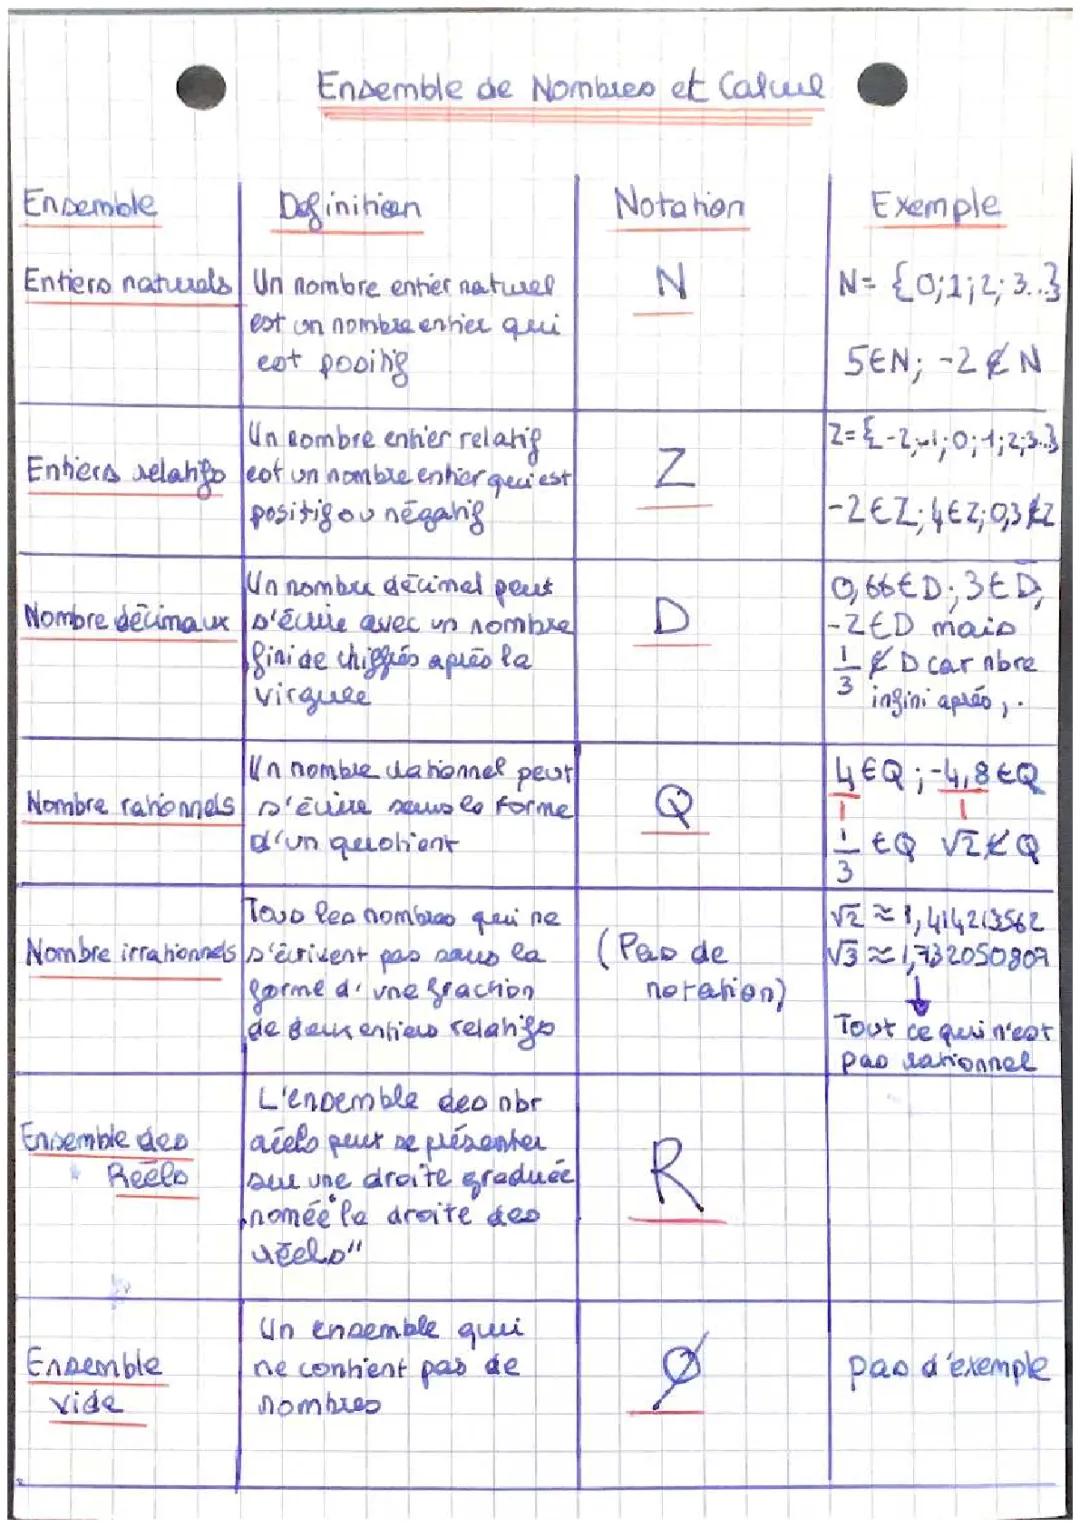 Ensemble de Nombres et Calcul
Ensemble
Définition
Notation
Exemple
Entiers naturels
Un nombre entier naturel
est un nombre entier qui
est positif
N
N= {0;1;2; 3..}
5∈N; -2 ∉ N
Entiers relatifs
Un nombre entier relatif
est un nombre entier qui est
positif ou négatif
Z
Z= {-2,-1; 0; 1; 2; 3..}
-2∈Z; 4∈Z; 0,3∉Z
Nombre décimaux
Un nombre décimal peut
s'écrire avec un nombre
fini de chiffres après la
virgule
D
0,66∈D; 3∈D,
-2∈D mais
1/3 ∉ D car nbre
infini après , .
Nombre rationnels
Un nombre rationnel peut
s'écrire sous la forme
d'un quotient
Q
4/1 ∈Q ; -4,8/1 ∈Q
1/3 ∈Q √2∉Q
Nombre irrationnels
Tous les nombres qui ne
s'écrivent pas sous la
forme d'une fraction
de deux entiers relatifs
(Pas de
notation)
√2 ≈ 1,414213562
√3 ≈ 1,732050807
↓
Tout ce qui n'est
pas rationnel
Ensemble des
Réels
L'ensemble des nbr
réels peut se présenter
sur une droite graduée
nomée "la droite des
réels"
R
Ensemble
vide
Un ensemble qui
ne contient pas de
nombres
Ø
pas d'exemple